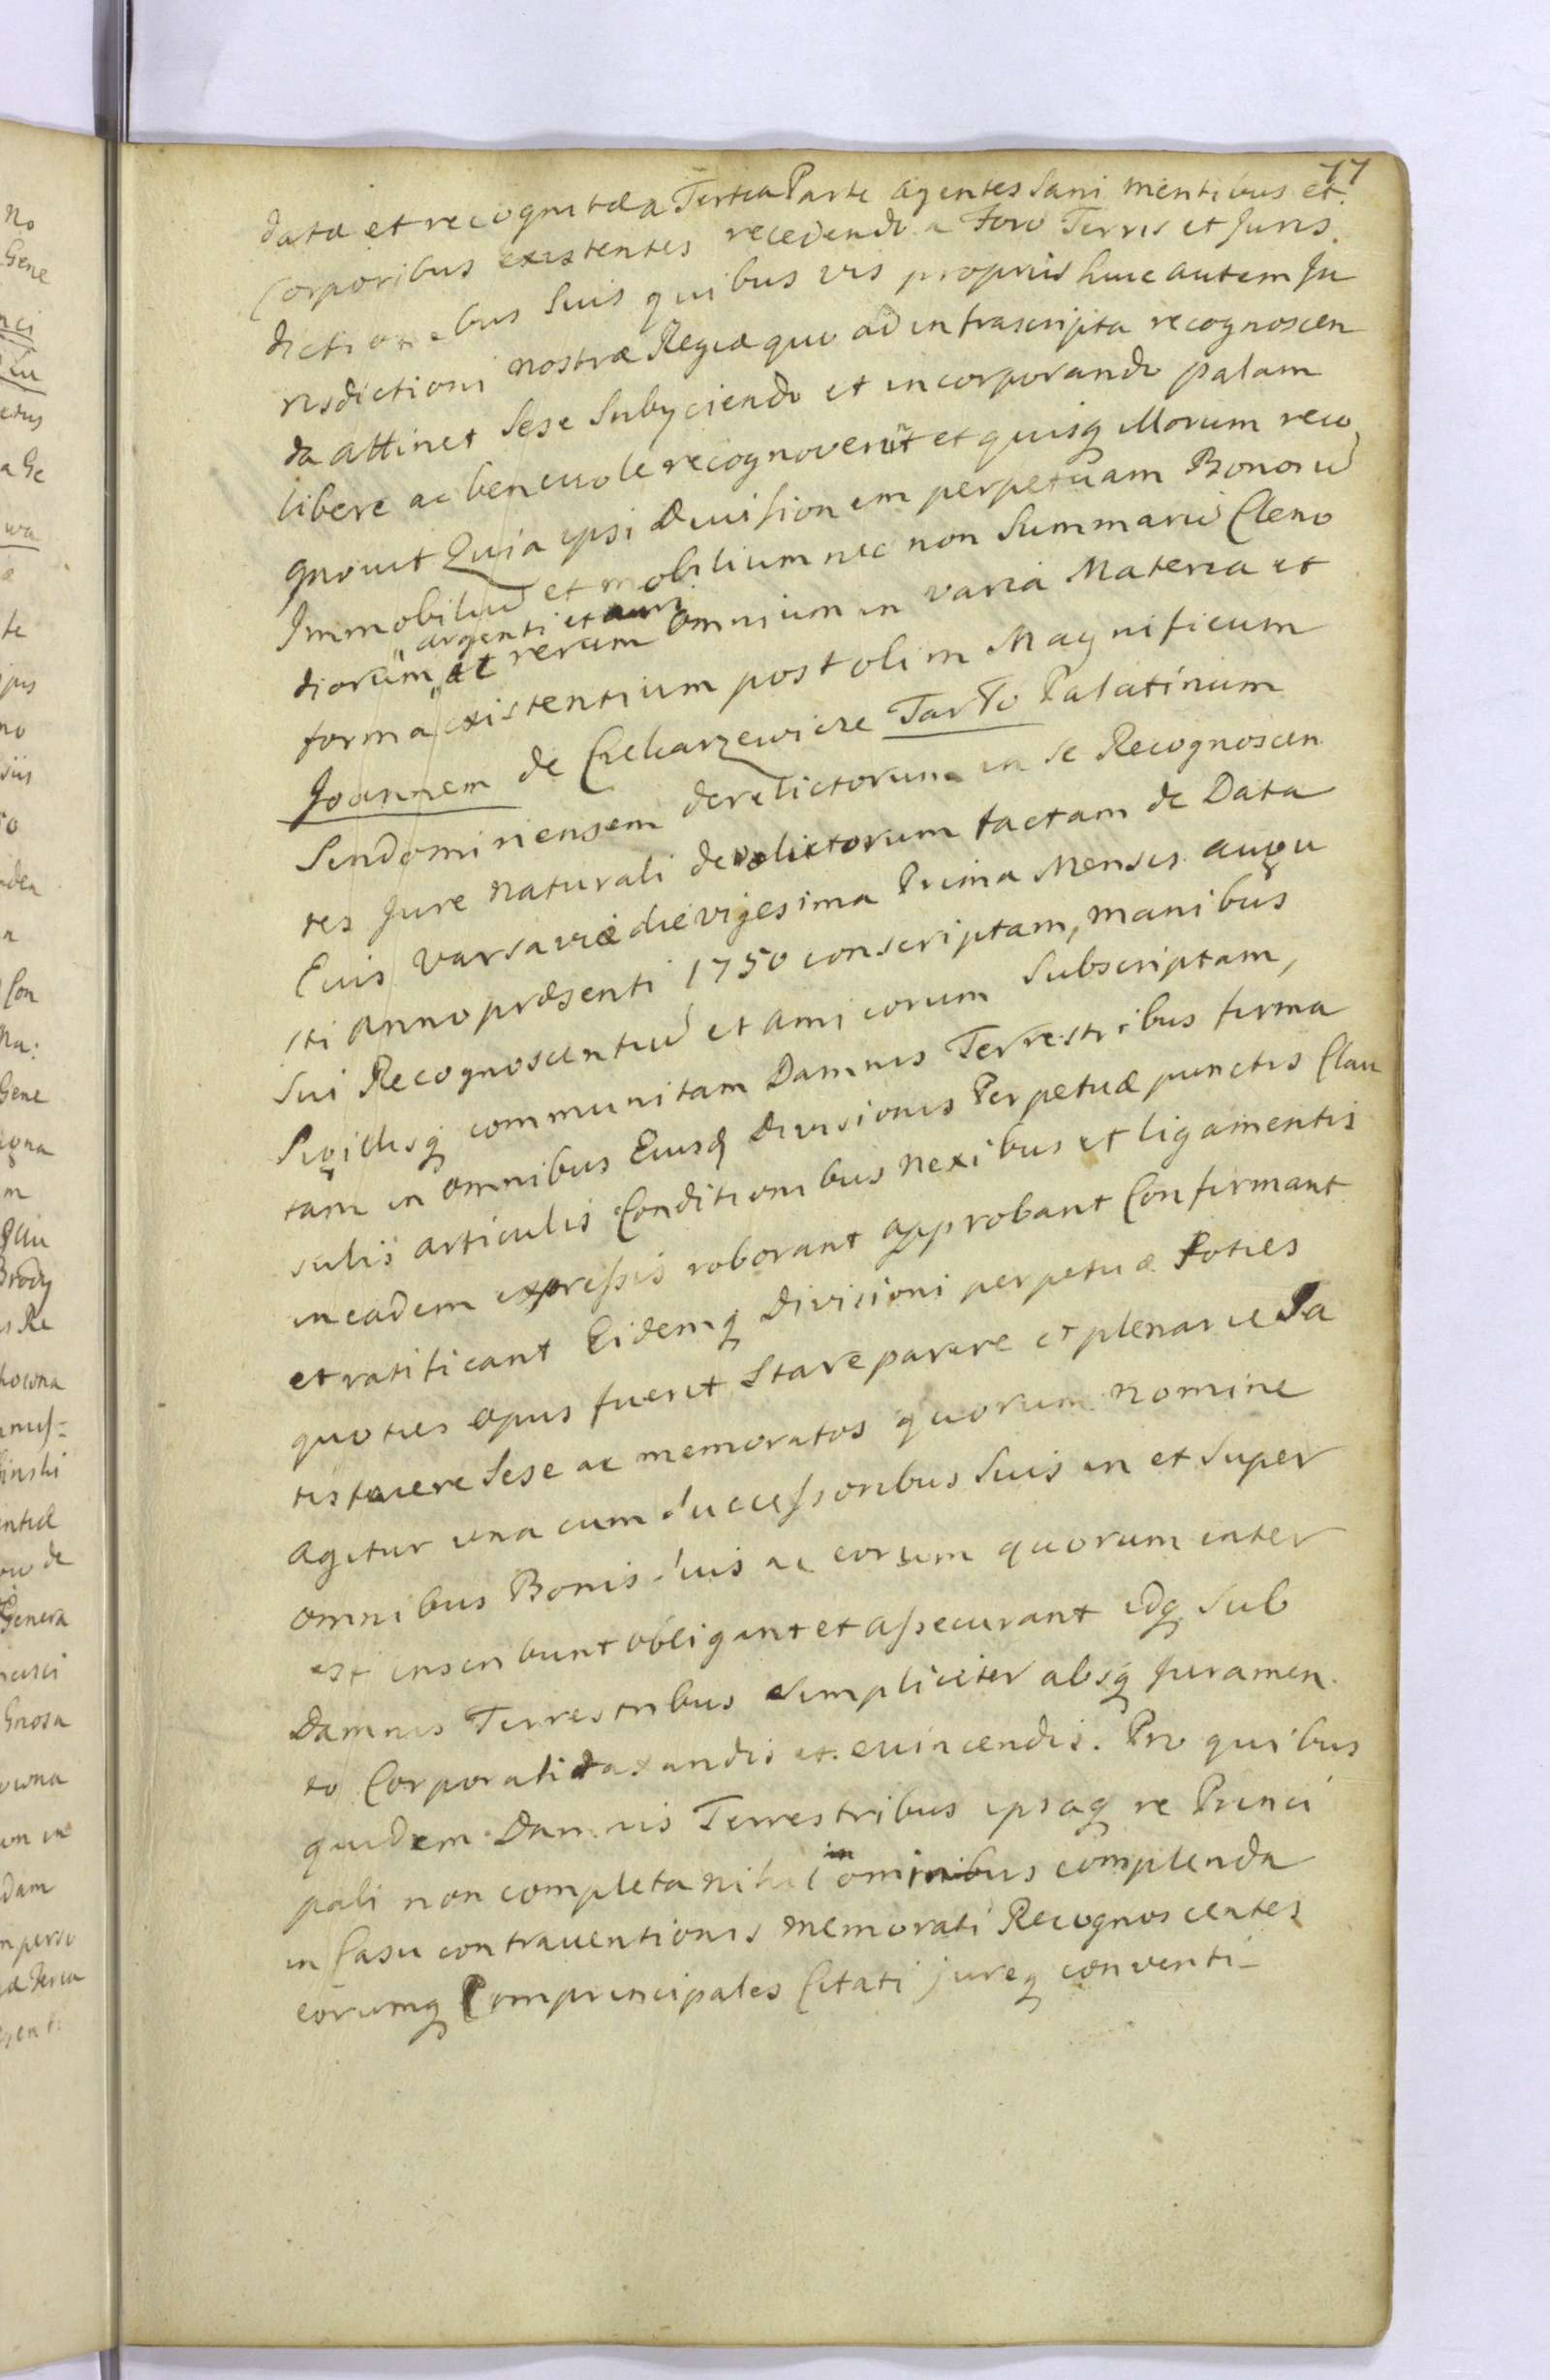 77
data et recognita a Tertia Parte agentes Sani mentibus et
Corporibus existentes recedendo a Foro Terris et Juris
dictionibus Suis quibus vis propriis huic autem Ju
risdictioni nostræ Regiæ quo ad infrascripta recognoscen
da attinet Sese Subyciendo et incorporando palam
libere ac benevole recognoverut et quisq illorum reco
gnovit Quia ipsi Divisionem perpetuam Bonorũ
Immobiliũ et mobilium nec non Summarũ Cleno
argenti et auri
diorum et rerum omnium in varia Materia et
forma existentium post olim Magnificum
Joannem de Czekarzewicze Tarło Palatinum
Sendomiriensem derelictorum in se Recognoscen
tes Jure naturali devolutorum factam de Data
Eius Varsaviæ die vigesima Prima Mensis augu
sti anno præsenti 1750 conscriptam, manibus
Sui Recognoscentiũ et amicorum Subscriptam,
Sigillisq communitam Damnis Terrestribus firma
tam in omnibus Eiusd Divisionis Perpetuæ punctis Clau
sulis articulis Conditionibus nexibus et ligamentis
in eadem expressis roborant approbant Confirmant
et ratificant Eidemq Divisioni perpetuæ toties
quoties opus fuerit Stare parere et plenarie Sa
tisfacere Sese ac memoratos quorum nomine
agitur una cum Successoribus Suis in et Super
omnibus Bonis Suis ac eorum quorum inter
est inscribunt obligant et assecurant idq Sub
Damnis Terrestribus Simpliciter absq Juramen
to Corporali taxandis et evincendis. Pro quibus
quidem Damnis Terrestribus ipsaq re Princi
pali non completa nihil in omnibus complenda
in Casu contraventionis memorati Recognoscentes
eorumq Comprincipales Citati jureq conventi